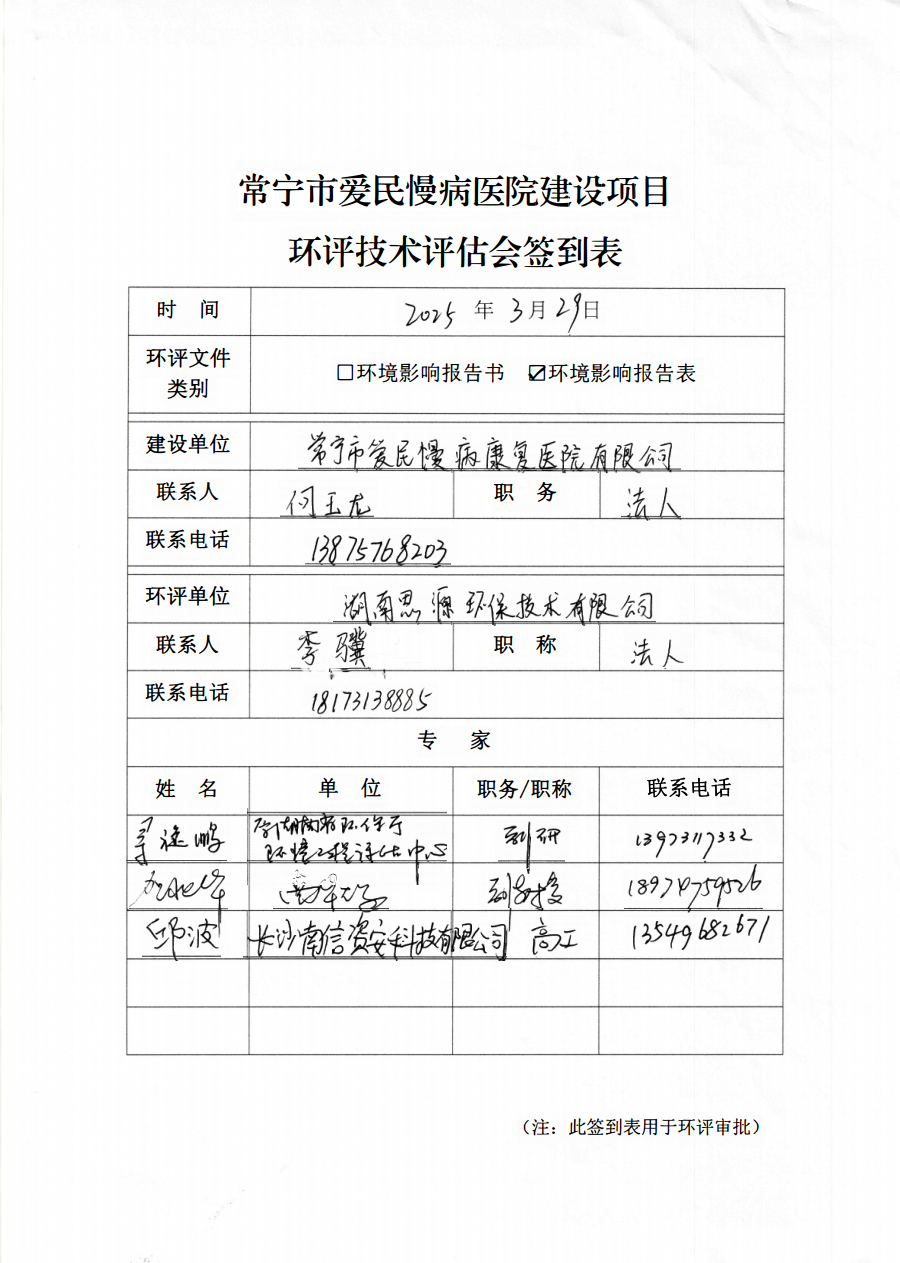 常宁市爱民慢病医院建设项目
环评技术评估会签到表
时 间 2025 年 3 月 29 日
环评文件类别 □环境影响报告书 ☑环境影响报告表
建设单位 常宁市爱民慢病康复医院有限公司
联系人 何玉龙 职 务 法人
联系电话 13875768203
环评单位 湖南思源环保技术有限公司
联系人 李骥 职 称 法人
联系电话 18173138885
专 家
姓 名 单 位 职务/职称 联系电话
鹏 原湖南省环保厅
环境工程评估中心 副研 13973117332
南华大学 副教授 18974759526
邱波 长沙南信资安科技有限公司 高工 13549682671
（注：此签到表用于环评审批）